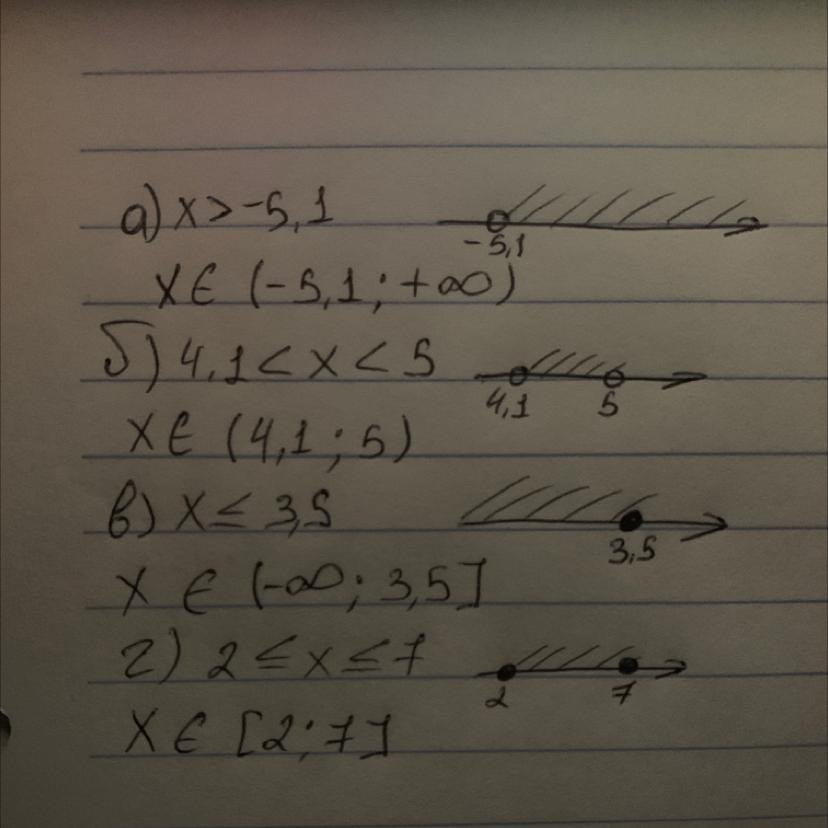 а) x > -5,1
-5,1
x ∈ (-5,1; +∞)
б) 4,1 < x < 5
4,1 5
x ∈ (4,1; 5)
в) x ≤ 3,5
3,5
x ∈ (-∞; 3,5]
г) 2 ≤ x ≤ 7
2 7
x ∈ [2; 7]